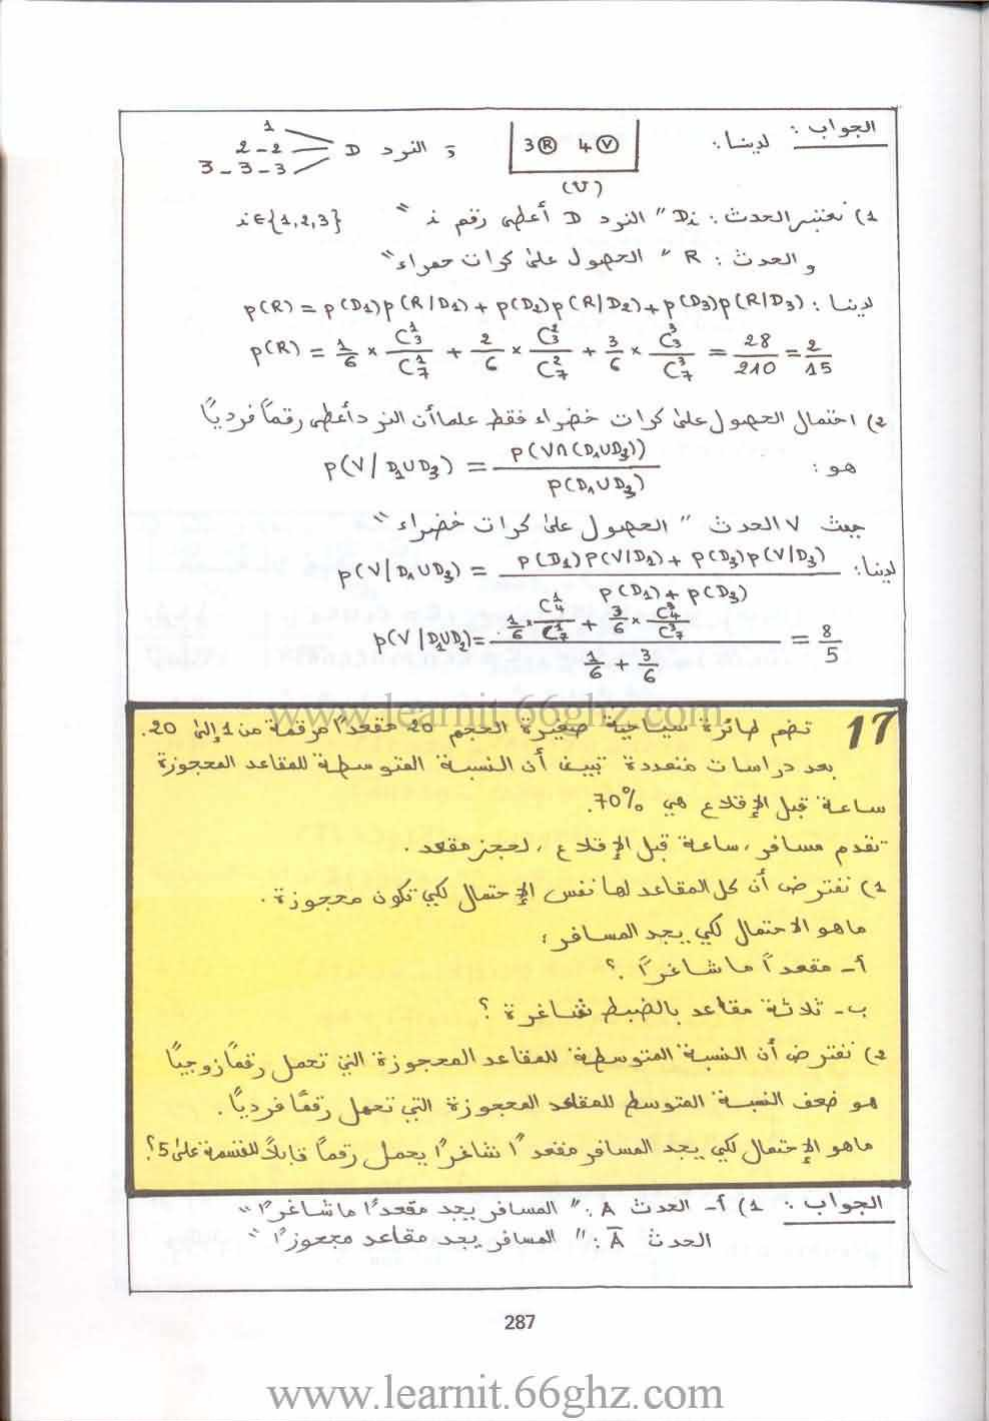 الجواب : لدينا :
3Ⓡ 4Ⓥ
(U)
و النرد D
1
2-2
3-3-3
1) نعتبر الحدث : Di " النرد D أعطى رقم i " i∈{1,2,3}
و الحدث : R " الحصول على كرات حمراء"
لدينا : p(R) = p(D1)p(R/D1) + p(D2)p(R/D2) + p(D3)p(R/D3)
p(R) = 1/6 × C¹₃/C¹₇ + 2/6 × C²₃/C²₇ + 3/6 × C³₃/C³₇ = 28/210 = 2/15
2) احتمال الحصول على كرات خضراء فقط علما أن النرد أعطى رقمًا فرديًا
هو : p(V/D1∪D3) = p(V∩(D1∪D3))/p(D1∪D3)
حيث V الحدث " الحصول على كرات خضراء "
لدينا : p(V/D1∪D3) = p(D1)p(V/D1) + p(D3)p(V/D3) / p(D1) + p(D3)
p(V/D1∪D2) = (1/6 × C¹₄/C¹₇ + 3/6 × C³₄/C³₇) / (1/6 + 3/6) = 8/5
17 تضم طائرة سياحية صغيرة الحجم 20 مقعدًا مرقمة من 1 إلى 20.
بعد دراسات متعددة تبين أن النسبة المتوسطة للمقاعد المحجوزة
ساعة قبل الإقلاع هي 70%.
تقدم مسافر، ساعة قبل الإقلاع، لحجز مقعد .
1) نفترض أن كل المقاعد لها نفس الإحتمال لكي تكون محجوزة .
ماهو الاحتمال لكي يجد المسافر :
أ- مقعدًا ما شاغرًا ؟
ب- ثلاثة مقاعد بالضبط شاغرة ؟
2) نفترض أن النسبة المتوسطة للمقاعد المحجوزة التي تحمل رقمًا زوجيًا
هو ضعف النسبة المتوسط للمقاعد المحجوزة التي تحمل رقمًا فرديًا .
ماهو الإحتمال لكي يجد المسافر مقعدًا شاغرًا يحمل رقمًا قابلاً للقسمة على 5؟
الجواب : 1) أ- الحدث A : " المسافر يجد مقعدًا ما شاغرًا "
الحدث A̅ : " المسافر يجد مقاعد محجوزًا "
287
www.learnit.66ghz.com
www.learnit.66ghz.com